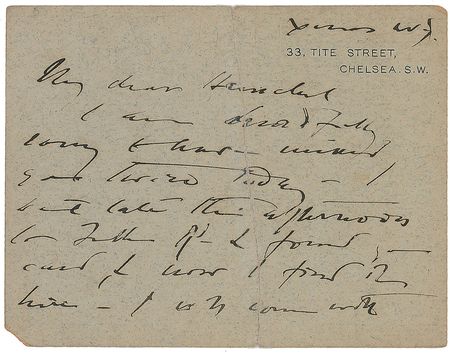 33, TITE STREET,
CHELSEA. S.W.
My dear Henschel
I am dreadfully
sorry to have missed
you twice today - I
but late this afternoon
to & found
card & now I find it
here - I will come with